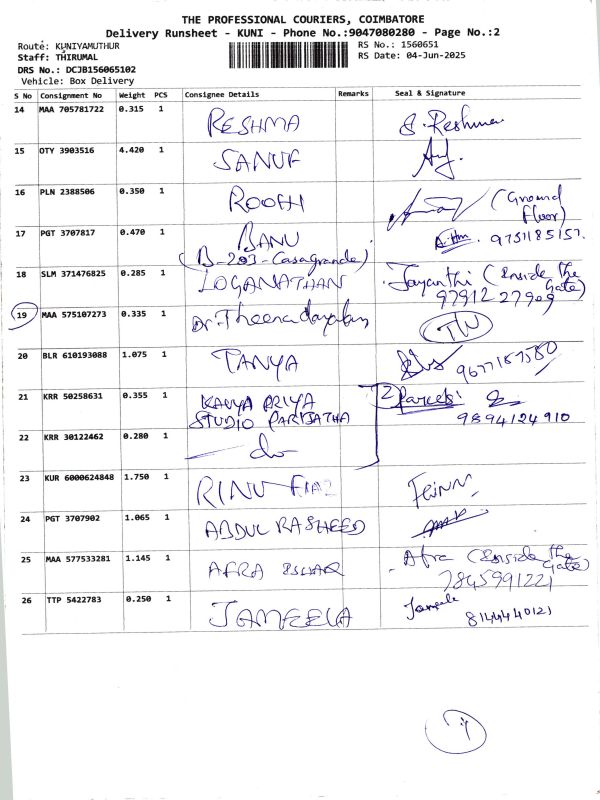 THE PROFESSIONAL COURIERS, COIMBATORE
Delivery Runsheet - KUNI - Phone No.:9047080280 - Page No.:2
Route: KUNIYAMUTHUR
RS No.: 1560651
Staff: THIRUMAL
RS Date: 04-Jun-2025
DRS No.: DCJB156065102
Vehicle: Box Delivery
S No Consignment No Weight PCS Consignee Details Remarks Seal & Signature
14 MAA 705781722 0.315 1 RESHMA S. Reshma
15 OTY 3903516 4.420 1 SANUF
16 PLN 2388506 0.350 1 ROOFI (Ground
Floor)
17 PGT 3707817 0.470 1 BANU 9751185157.
(B-203-Casagrande)
18 SLM 371476825 0.285 1 LOGANATHAN Jayanthi (Inside The
Gate)
97912 27909
19 MAA 575107273 0.335 1 Dr. Theenadayalan
20 BLR 610193088 1.075 1 TANYA 9677187580
21 KRR 50258631 0.355 1 KAVYA PRIYA 2 Parcels:
STUDIO PARIJATHA 9894124910
22 KRR 30122462 0.280 1 do
23 KUR 6000624848 1.750 1 RINU FIAZ
24 PGT 3707902 1.065 1 ABDUL RASHEED
25 MAA 577533281 1.145 1 AFRA Afra (Inside the
Gate)
7845991221
26 TTP 5422783 0.250 1 JAMEELA Jameela
8144440121